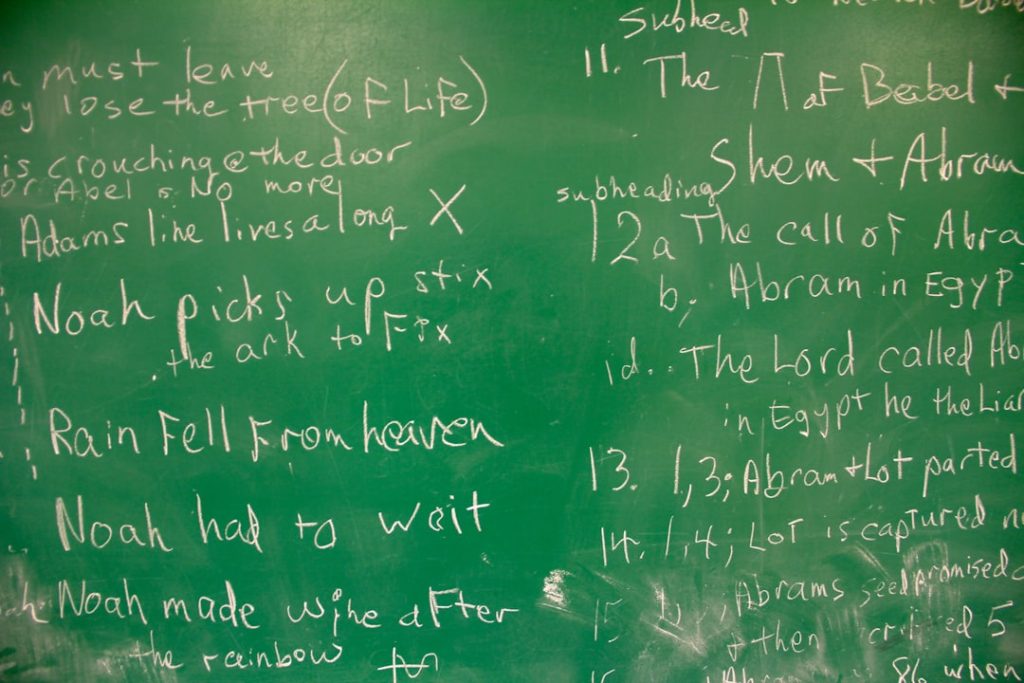 must leave
lose the tree (of Life)
is crouching @ the door
or Abel & No more
Adams line lives a long X
Noah picks up stix
the ark to Fix
Rain Fell From heaven
Noah had to wait
Noah made wine after
the rainbow
Subhead
11. The Π of Babel +
Shem + Abram
subheading
12a The call of Abra
b, Abram in Egyp
1d.. The Lord called Ab
in Egypt he the Liar
13. 1,3; Abram + Lot parted
14. 1,4; Lot is captured
15 Abrams seed promised
+ then 5
86 when